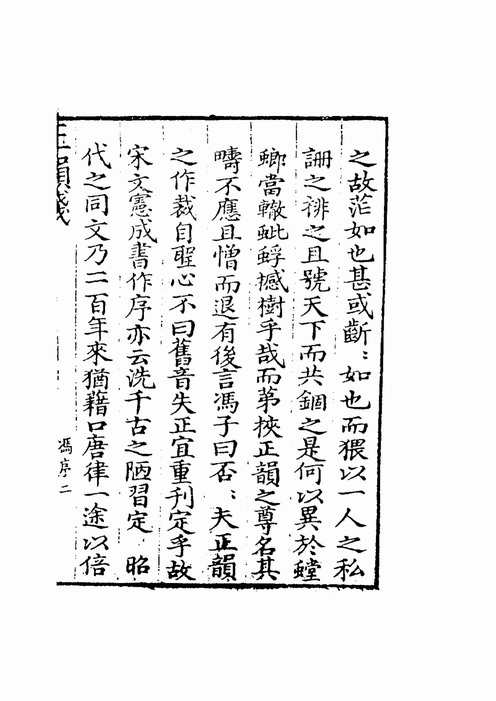 之故茫如也甚或斷〻如也而猥以一人之私
詶之裶之且號天下而共錮之是何以異於螳
螂當轍蚍蜉撼樹乎哉而苐挾正韻之尊名其
疇不應且憎而退有後言馮子曰否〻夫正韻
之作裁自聖心不曰舊音失正宜重刊定乎故
宋文憲成書作序亦云洗千古之陋習定 昭
代之同文乃二百年來猶藉口唐律一途以倍
正韻箋
馮序二